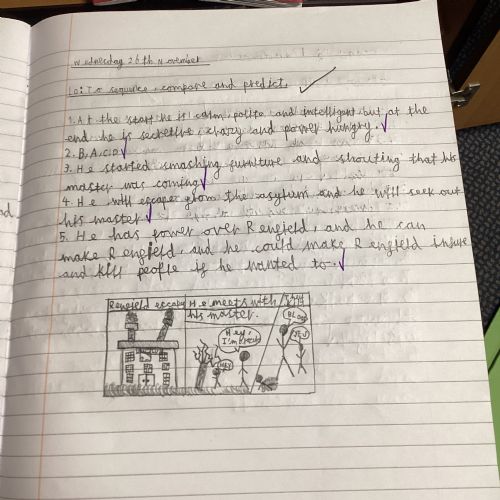 Wednesday 26th November
Lo: To sequence, compare and predict.
1. At the start he is calm, polite and intelligent but at the
end he is secretive, crazy and power hungry.
2. B, A, C, D
3. He started smashing furniture and shouting that his
master was coming
4. He will escape from the asylum and he will seek out
his master.
5. He has power over Renfield, and he can
make Renfield, and he could make Renfield insane
and kill people if he wanted to.
Renfield escapes
He meets with
his master.
They
kill
Hey,
I'm
Hey
Blood
Yes